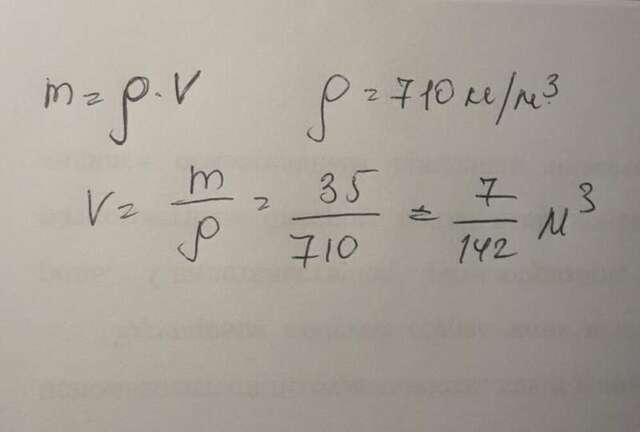 m = ρ · V ρ = 710 м/м³
V = m/ρ = 35/710 = 7/142 м³